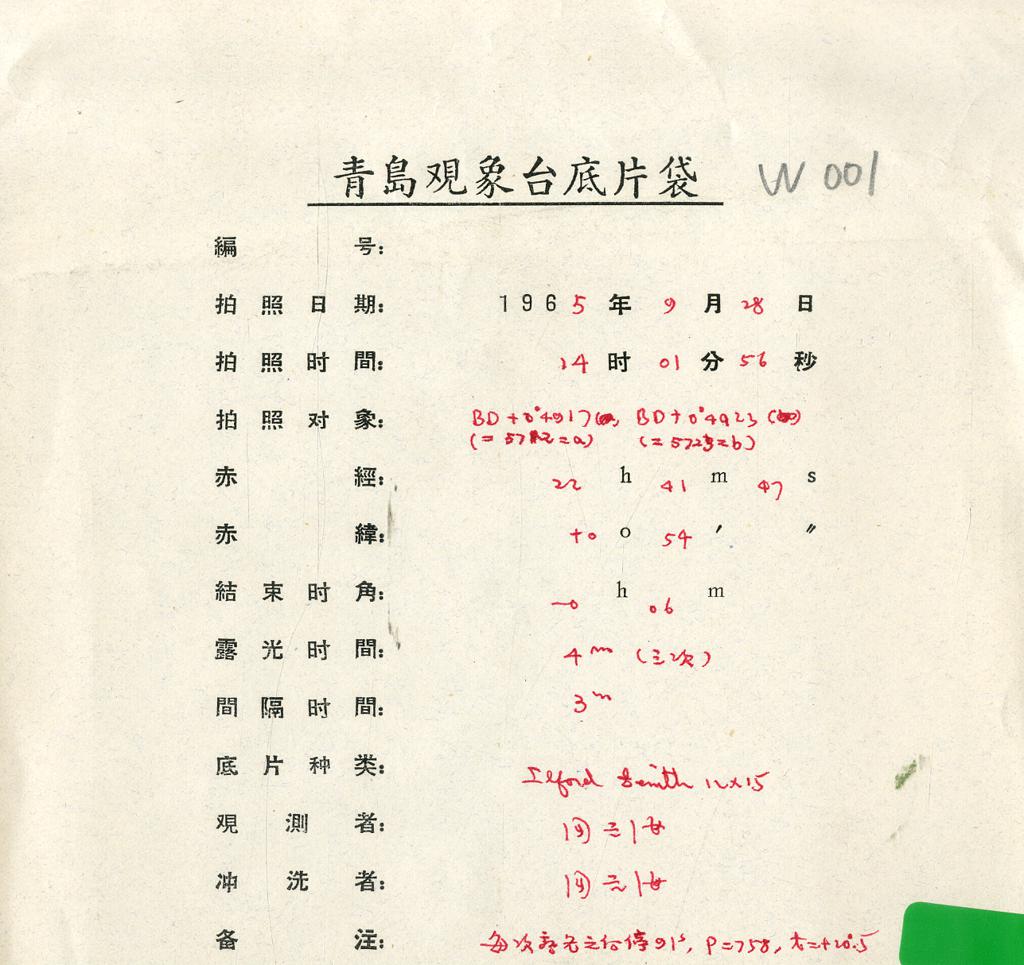 青島观象台底片袋 W 001
編号:
拍照日期: 1965年9月28日
拍照时間: 24时01分56秒
拍照对象: BD+0°4917, BD+0°4923
(= 57 2=a) (= 5723=b)
赤經: 22 h 41 m 47 s
赤緯: +0 o 54 ′ ″
結束时角: -0 h 06 m
露光时間: 4ᵐ (三次)
間隔时間: 3ᵐ
底片种类: Ilford Zenith 12x15
观測者:
冲洗者:
备注: 每次露光之 停91ˢ, P=758, t=+20.5